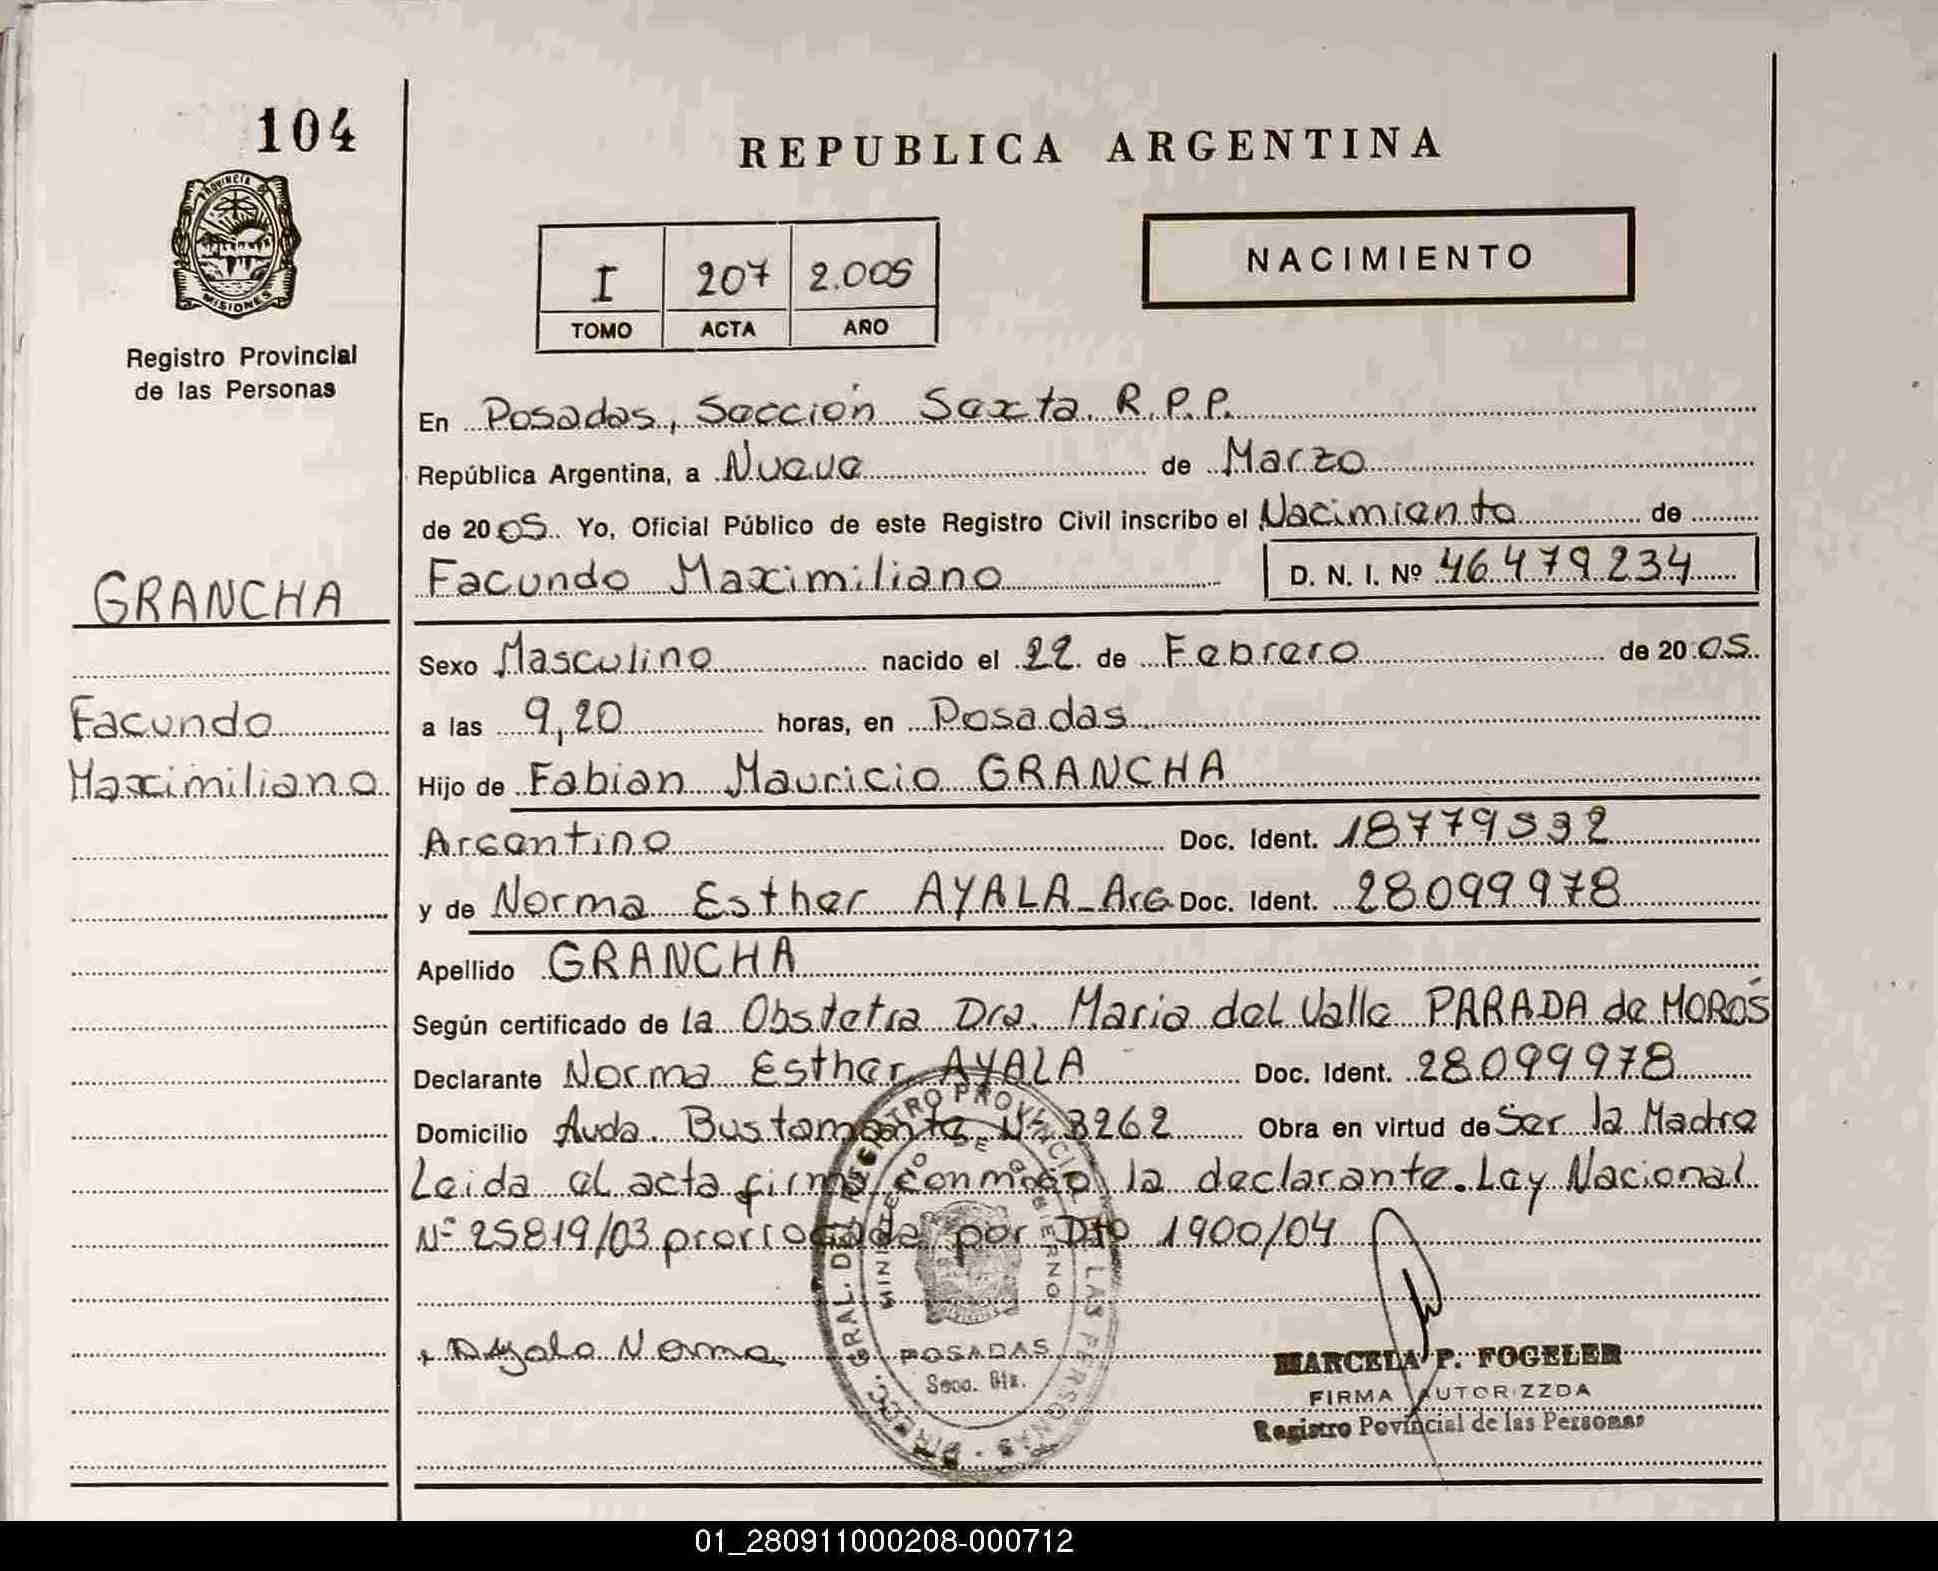 104
REPUBLICA ARGENTINA
PROVINCIA DE
MISIONES
Registro Provincial
de las Personas
I 207 2.005
TOMO ACTA AÑO
NACIMIENTO
En Posadas, Sección Sexta. R.P.P.
República Argentina, a Nueve de Marzo
de 2005. Yo, Oficial Público de este Registro Civil inscribo el Nacimiento de
GRANCHA
Facundo Maximiliano D. N. I. Nº 46.479.234
Sexo Masculino nacido el 22 de Febrero de 2005.
Facundo
a las 9,20 horas, en Posadas
Maximiliano
Hijo de Fabian Mauricio GRANCHA
Argentino Doc. Ident. 18779932
y de Norma Esther AYALA_Arg Doc. Ident. 28.099.978
Apellido GRANCHA
Según certificado de la Obstetra Dra. Maria del Valle PARADA de MOROS
Declarante Norma Esther AYALA Doc. Ident. 28.099.978
Domicilio Avda. Bustamante Nº 3262 Obra en virtud de Ser la Madre
Leida el acta firma conmigo la declarante. Ley Nacional
Nº 25819/03 prorrogada por Dto 1900/04
Ayala Norma
DIREC. GRAL. DEL REGISTRO PROVINCIAL DE LAS PERSONAS
MINISTERIO DE GOBIERNO
POSADAS
MARCELA P. FOGELER
FIRMA AUTORIZZDA
Registro Povincial de las Personas
01_280911000208-000712